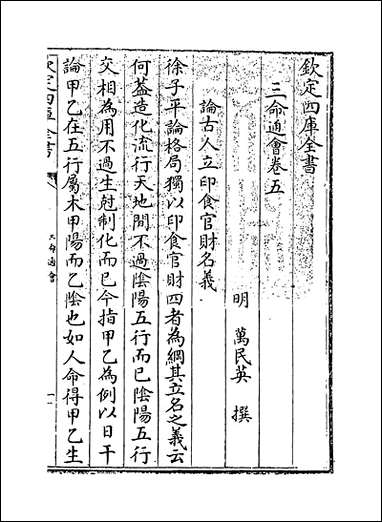 欽定四庫全書
三命通會卷五
明 萬民英 撰
論古人立印食官財名義
徐子平論格局獨以印食官財四者為綱其立名之義云
何葢造化流行天地間不過陰陽五行而已陰陽五行
交相為用不過生尅制化而已今指甲乙為例以日干
論甲乙在五行屬木甲陽而乙陰也如人命得甲乙生
欽定四庫全書
三命通會
一